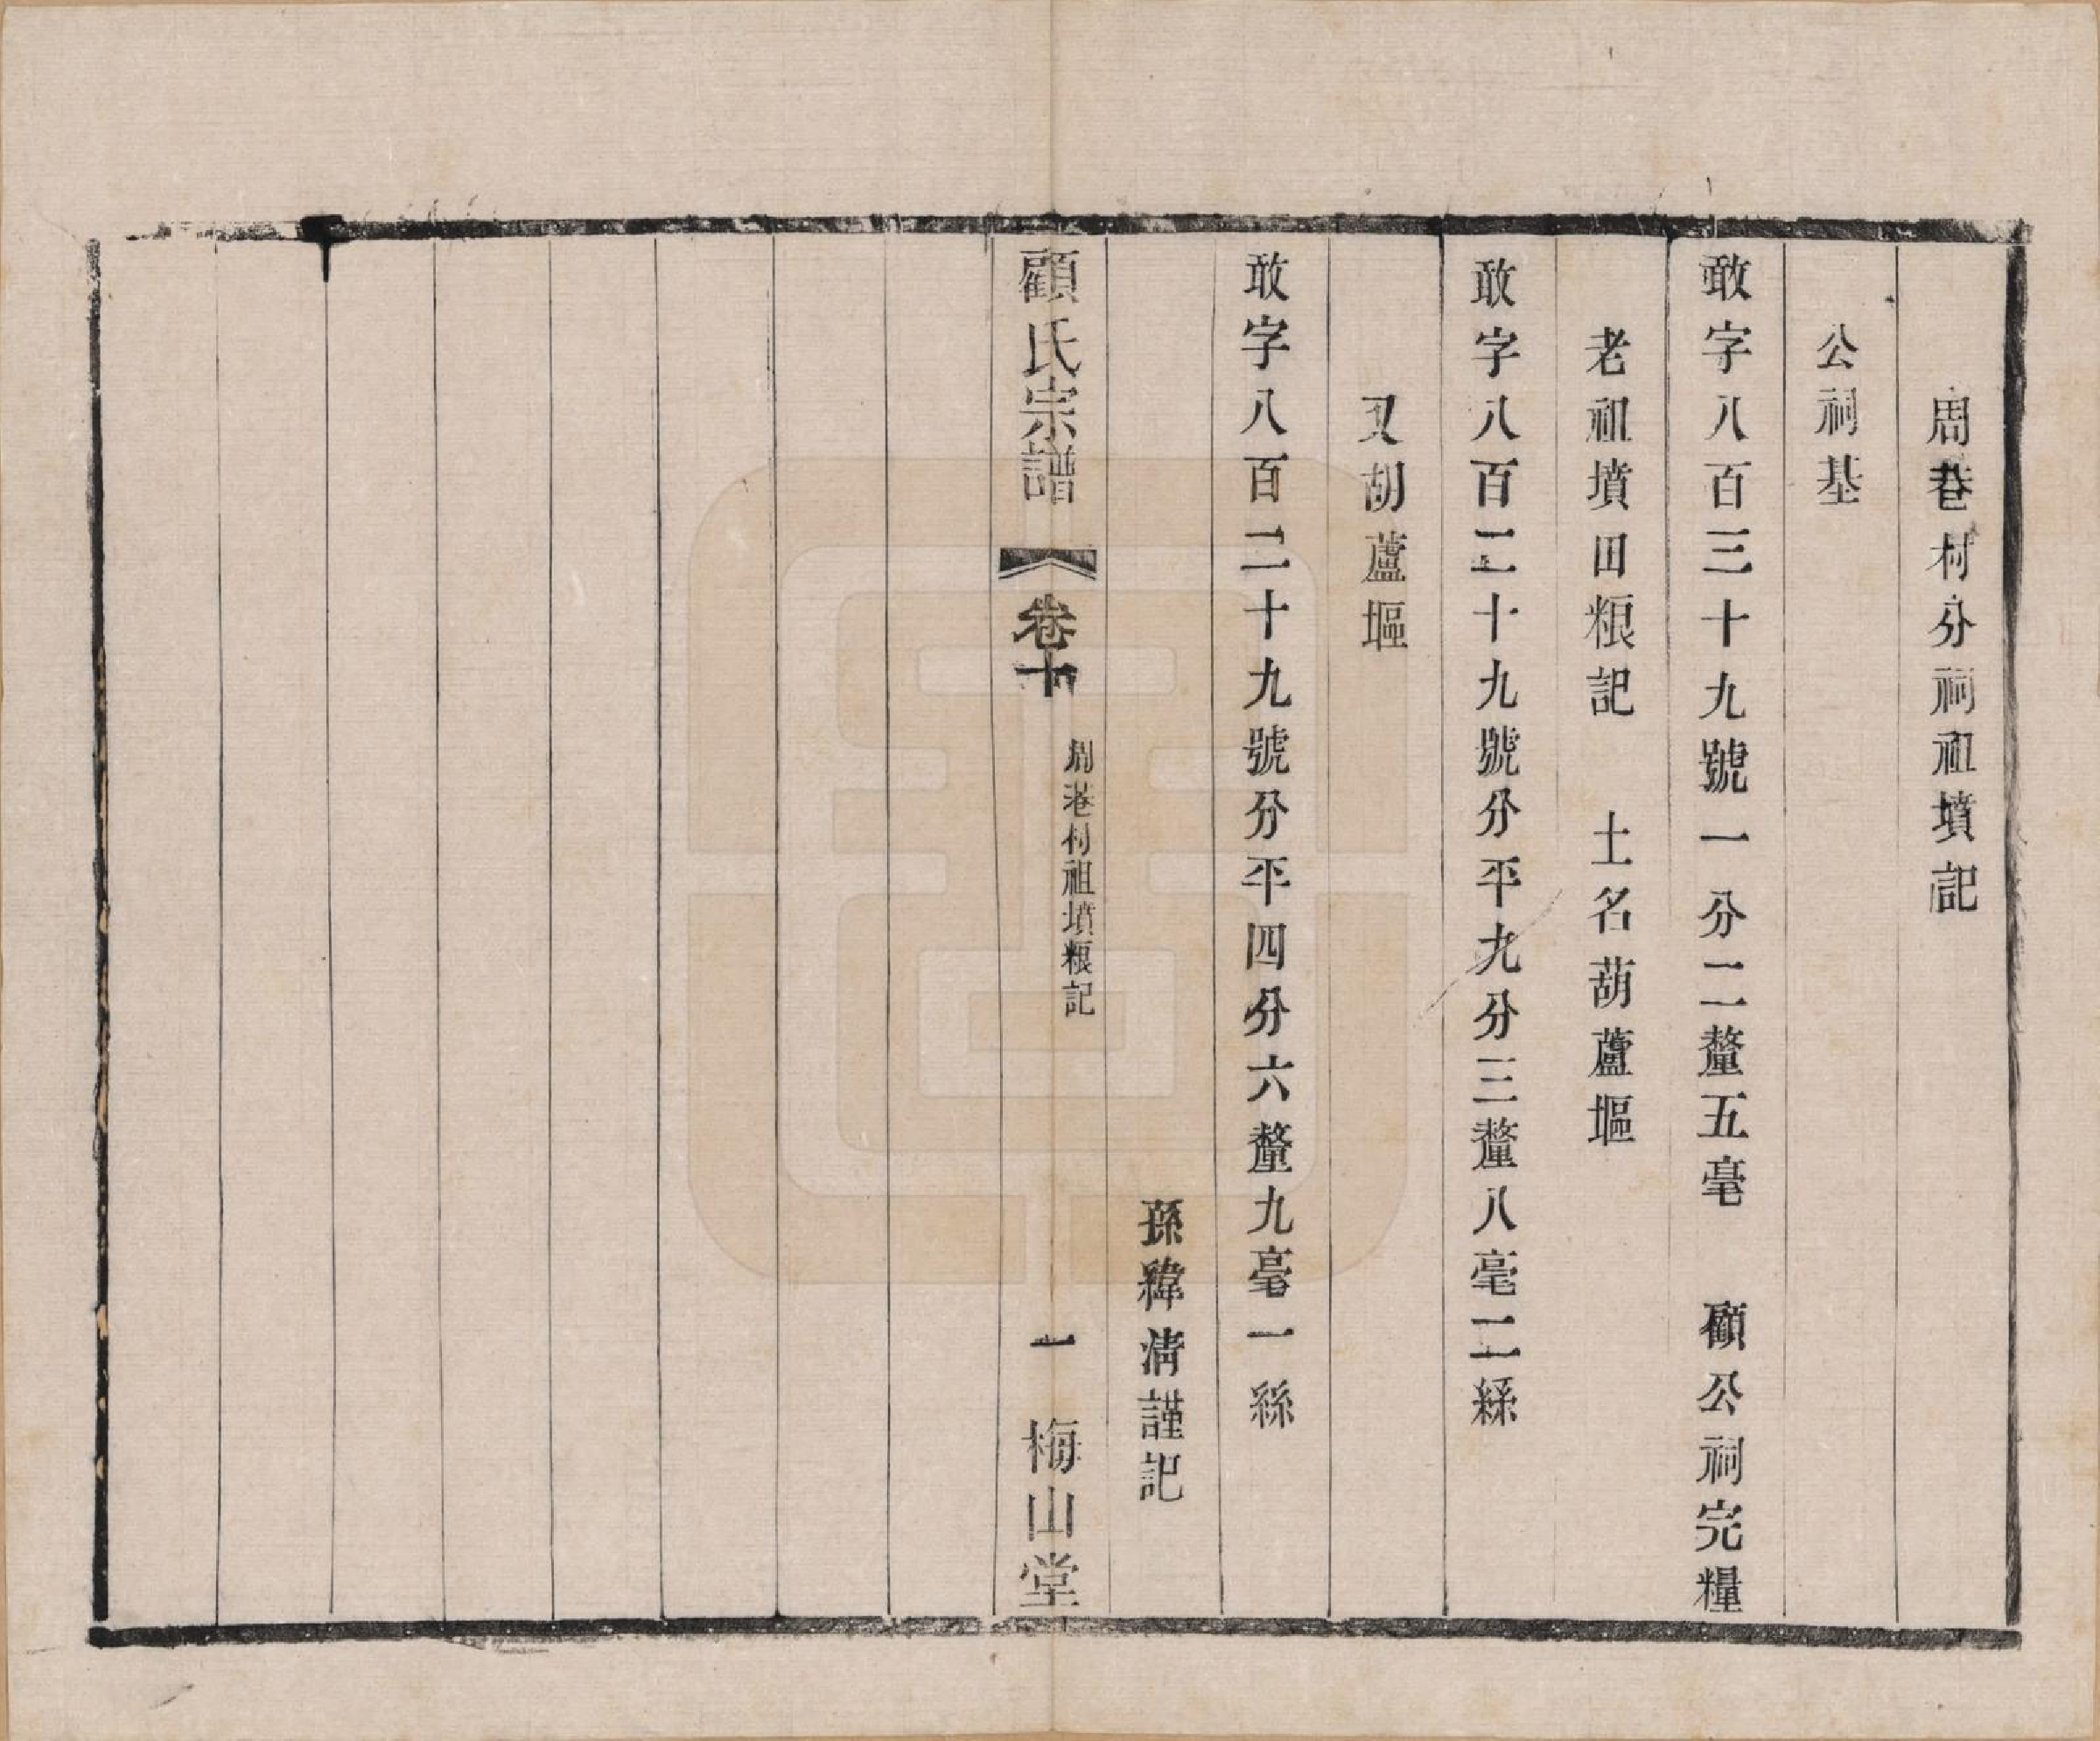 周巷村分祠祖墳記
公祠基
敢字八百三十九號一分二釐五毫　顧公祠完糧
老祖墳田粮記　土名葫蘆塸
敢字八百二十九號分平九分三釐八毫二絲
又胡蘆塸
敢字八百二十九號分平四分六釐九毫一絲
孫緯清謹記
顧氏宗譜　卷十　周巷村祖墳粮記　一　梅山堂